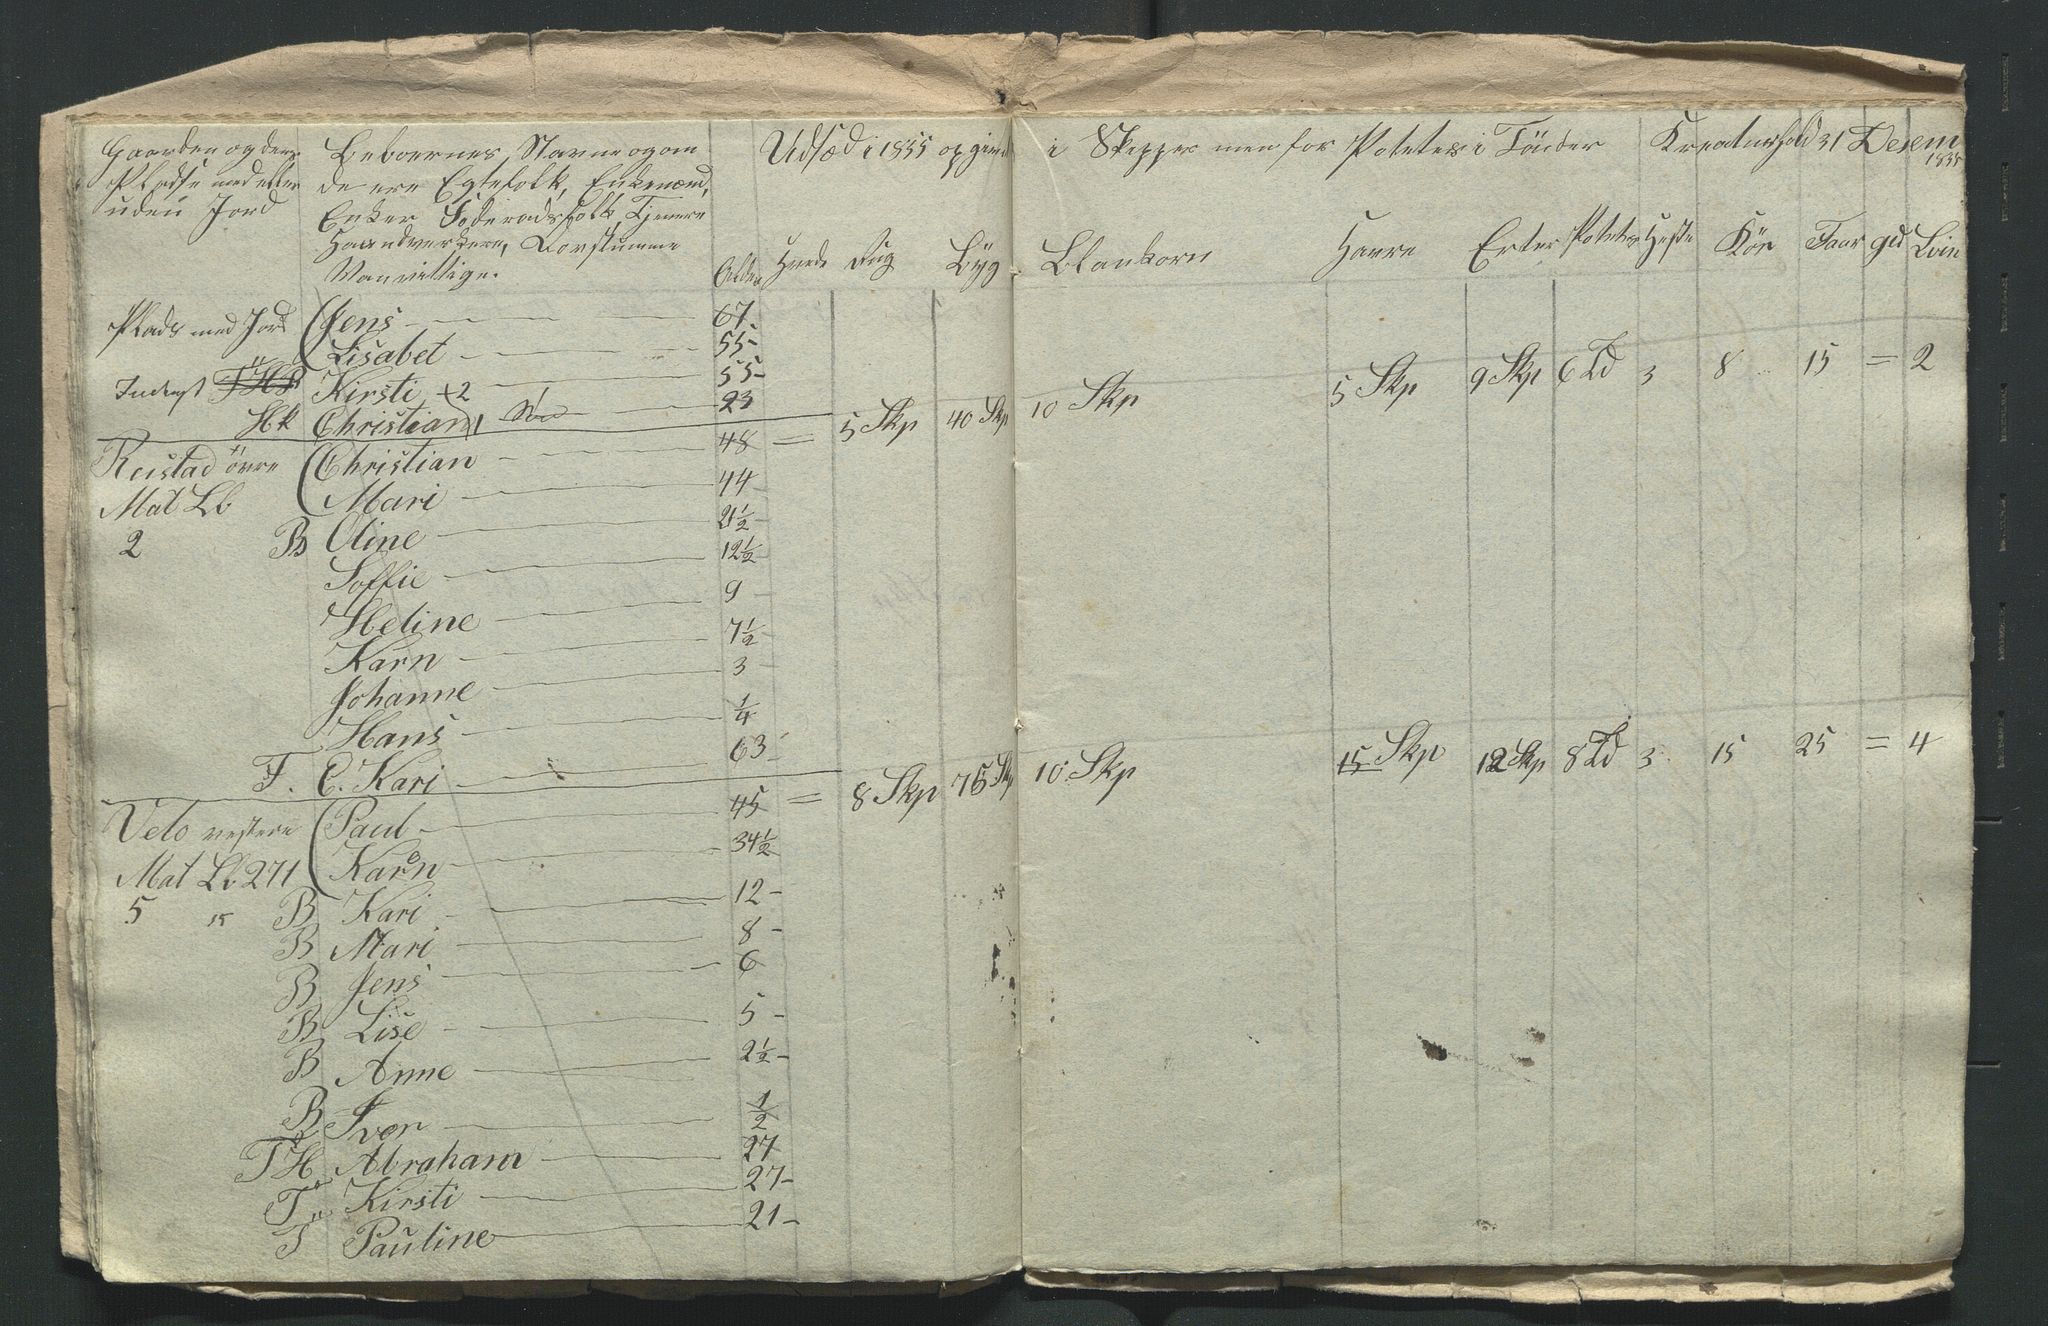 Gaarden og dens
Pladse med eller
uden Jord
Beboernes Navne og om
de ere Egtefolk, Enkemænd,
Enker Föderadsfolk, Tjenere
Haandverkere, Dovstumme
Vanvittige.
Alder
Udsæd i 1835 opgivet i Skepper men for Poteter i Tönder
Kreaturhold 31 Desem
1835
Hvede Rug Byg Blankorn Havre Erter Poteter Heste Kör Faar ged Svin
Plads med Jord Jens 67
Lisabet 55
Inderst Kirsti +2 55
HK Christian 1 Sön 23
Reistad övre Christian 48 = 5 Skp 40 Skp 10 Skp 5 Skp 9 Skp 6 Td 3 8 15 = 2
Mat Lb Mari 44
2 B Oline 21 1/2
Soffie 12 1/2
Heline 9
Karn 7 1/2
Johanne 3
Hans 1/4
F. E. Kari 63
Velo vestere Paul 45 = 8 Skp 76 Skp 10 Skp 15 Skp 12 Skp 8 Td 3 15 25 = 4
Mat Lb 271 Karn 34 1/2
5 15 B Kari 12
B Mari 8
B Jens 6
B Lise 5
B Anne 2 1/2
B Iver 1/2
T H Abraham 27
T Kirsti 27
T Pauline 21